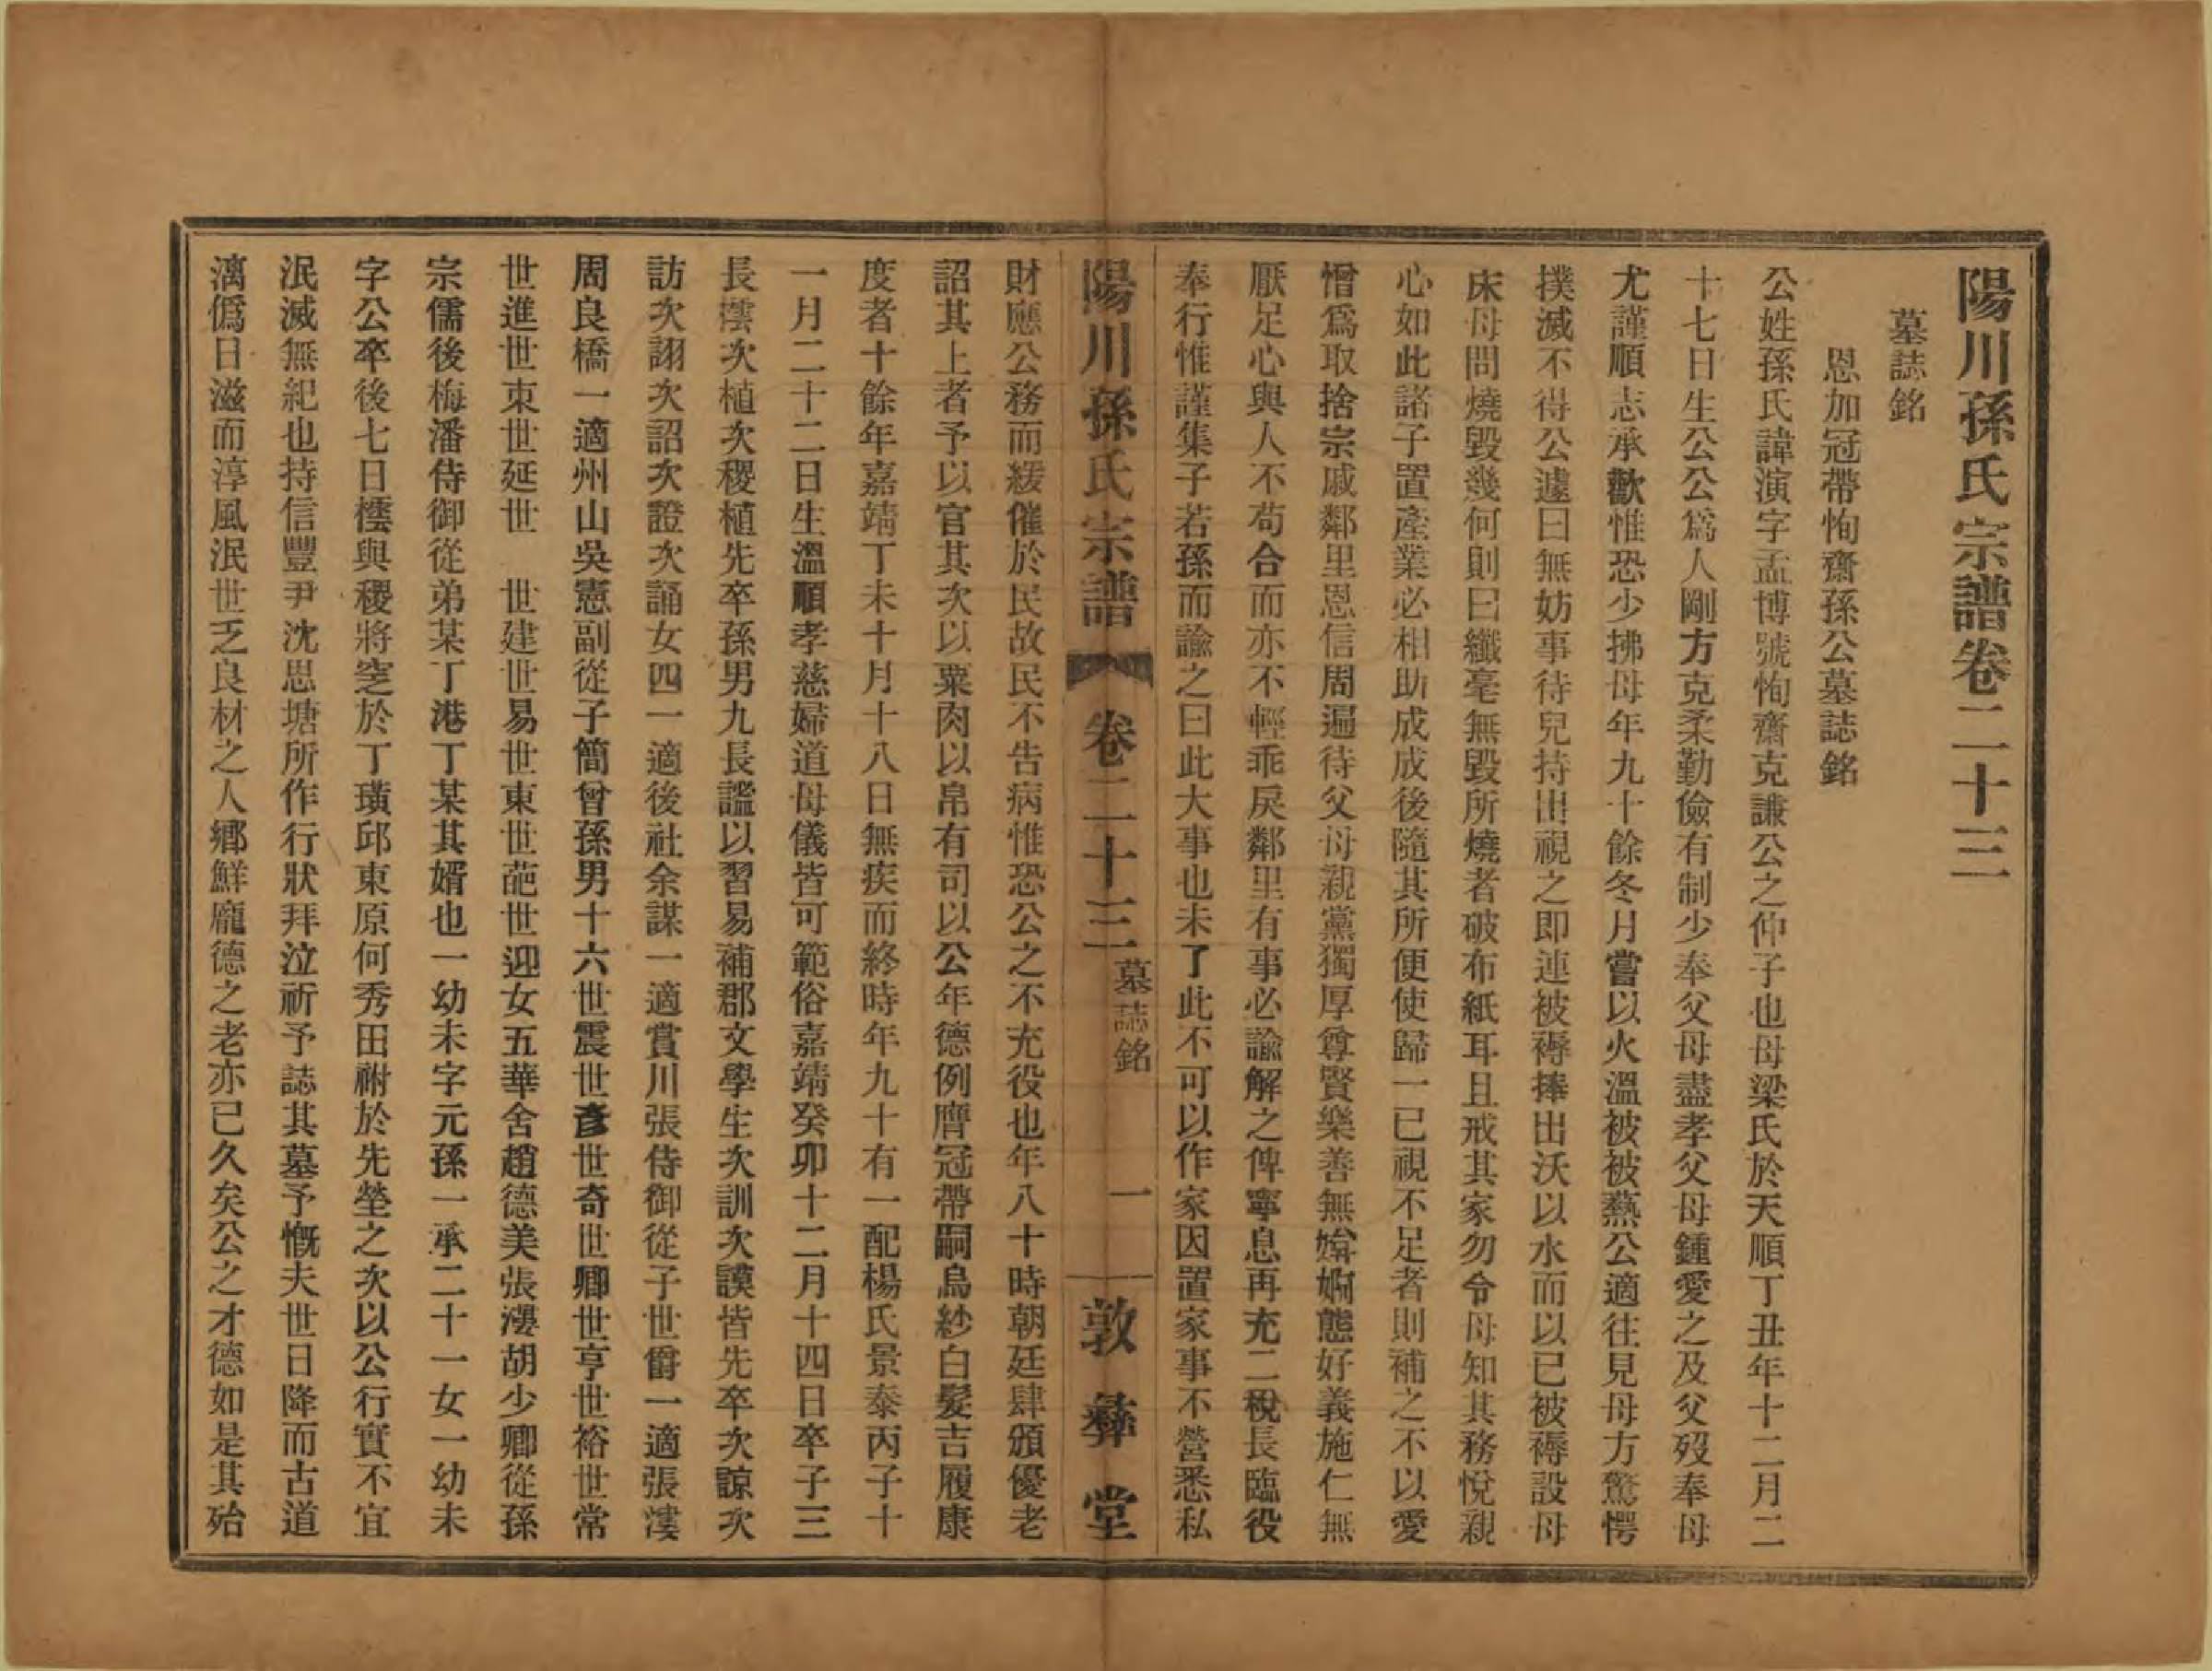 陽川孫氏宗譜卷二十三
墓誌銘
恩加冠帶恂齋孫公墓誌銘
公姓孫氏諱演字孟博號恂齋克謙公之仲子也母梁氏於天順丁丑年十二月二
十七日生公公爲人剛方克柔勤儉有制少奉父母盡孝父母鍾愛之及父歿奉母
尤謹順志承歡惟恐少拂母年九十餘冬月嘗以火溫被被爇公適往見母方驚愕
撲滅不得公遽曰無妨事待兒持出視之即連被褥捧出沃以水而以已被褥設母
床母問燒毀幾何則曰纖毫無毀所燒者破布紙耳且戒其家勿令母知其務悅親
心如此諸子置產業必相助成成後隨其所便使歸一已視不足者則補之不以愛
憎爲取捨宗戚鄰里恩信周遍待父母親黨獨厚尊賢樂善無媕婀態好義施仁無
厭足心與人不苟合而亦不輕乖戾鄰里有事必諭解之俾寧息再充二稅長臨役
奉行惟謹集子若孫而諭之曰此大事也未了此不可以作家因置家事不營悉私
陽川孫氏宗譜 卷二十三 墓誌銘 一 敦彝堂
財應公務而緩催於民故民不告病惟恐公之不充役也年八十時朝廷肆頒優老
詔其上者予以官其次以粟肉以帛有司以公年德例膺冠帶嗣烏紗白髮吉履康
度者十餘年嘉靖丁未十月十八日無疾而終時年九十有一配楊氏景泰丙子十
一月二十二日生溫順孝慈婦道母儀皆可範俗嘉靖癸卯十二月十四日卒子三
長橒次植次稷植先卒孫男九長謐以習易補郡文學生次訓次謨皆先卒次諒次
訪次詡次詔次證次誦女四一適後社余謀一適賞川張侍御從子世爵一適張溇
周良橋一適州山吳憲副從子簡曾孫男十六世震世彥世奇世卿世亨世裕世常
世進世東世延世 世建世易世東世葩世迎女五華舍趙德美張溇胡少卿從孫
宗儒後梅潘侍御從弟某丁港丁某其婿也一幼未字元孫一承二十一女一幼未
字公卒後七日橒與稷將窆於丁璜邱東原何秀田祔於先塋之次以公行實不宜
泯滅無紀也持信豐尹沈思塘所作行狀拜泣祈予誌其墓予慨夫世日降而古道
漓僞日滋而淳風泯世乏良材之人鄉鮮龐德之老亦已久矣公之才德如是其殆